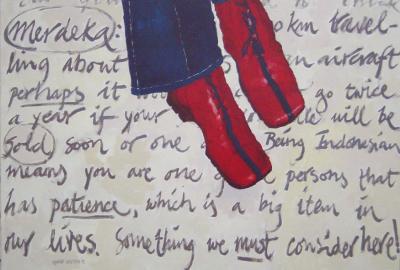 Merdeka! travel-
ling about an aircraft
perhaps it go twice
a year if your will be
sold soon or one Being Indonesian
means you are one persons that
has patience, which is a big item in
our lives. Something we must consider here!